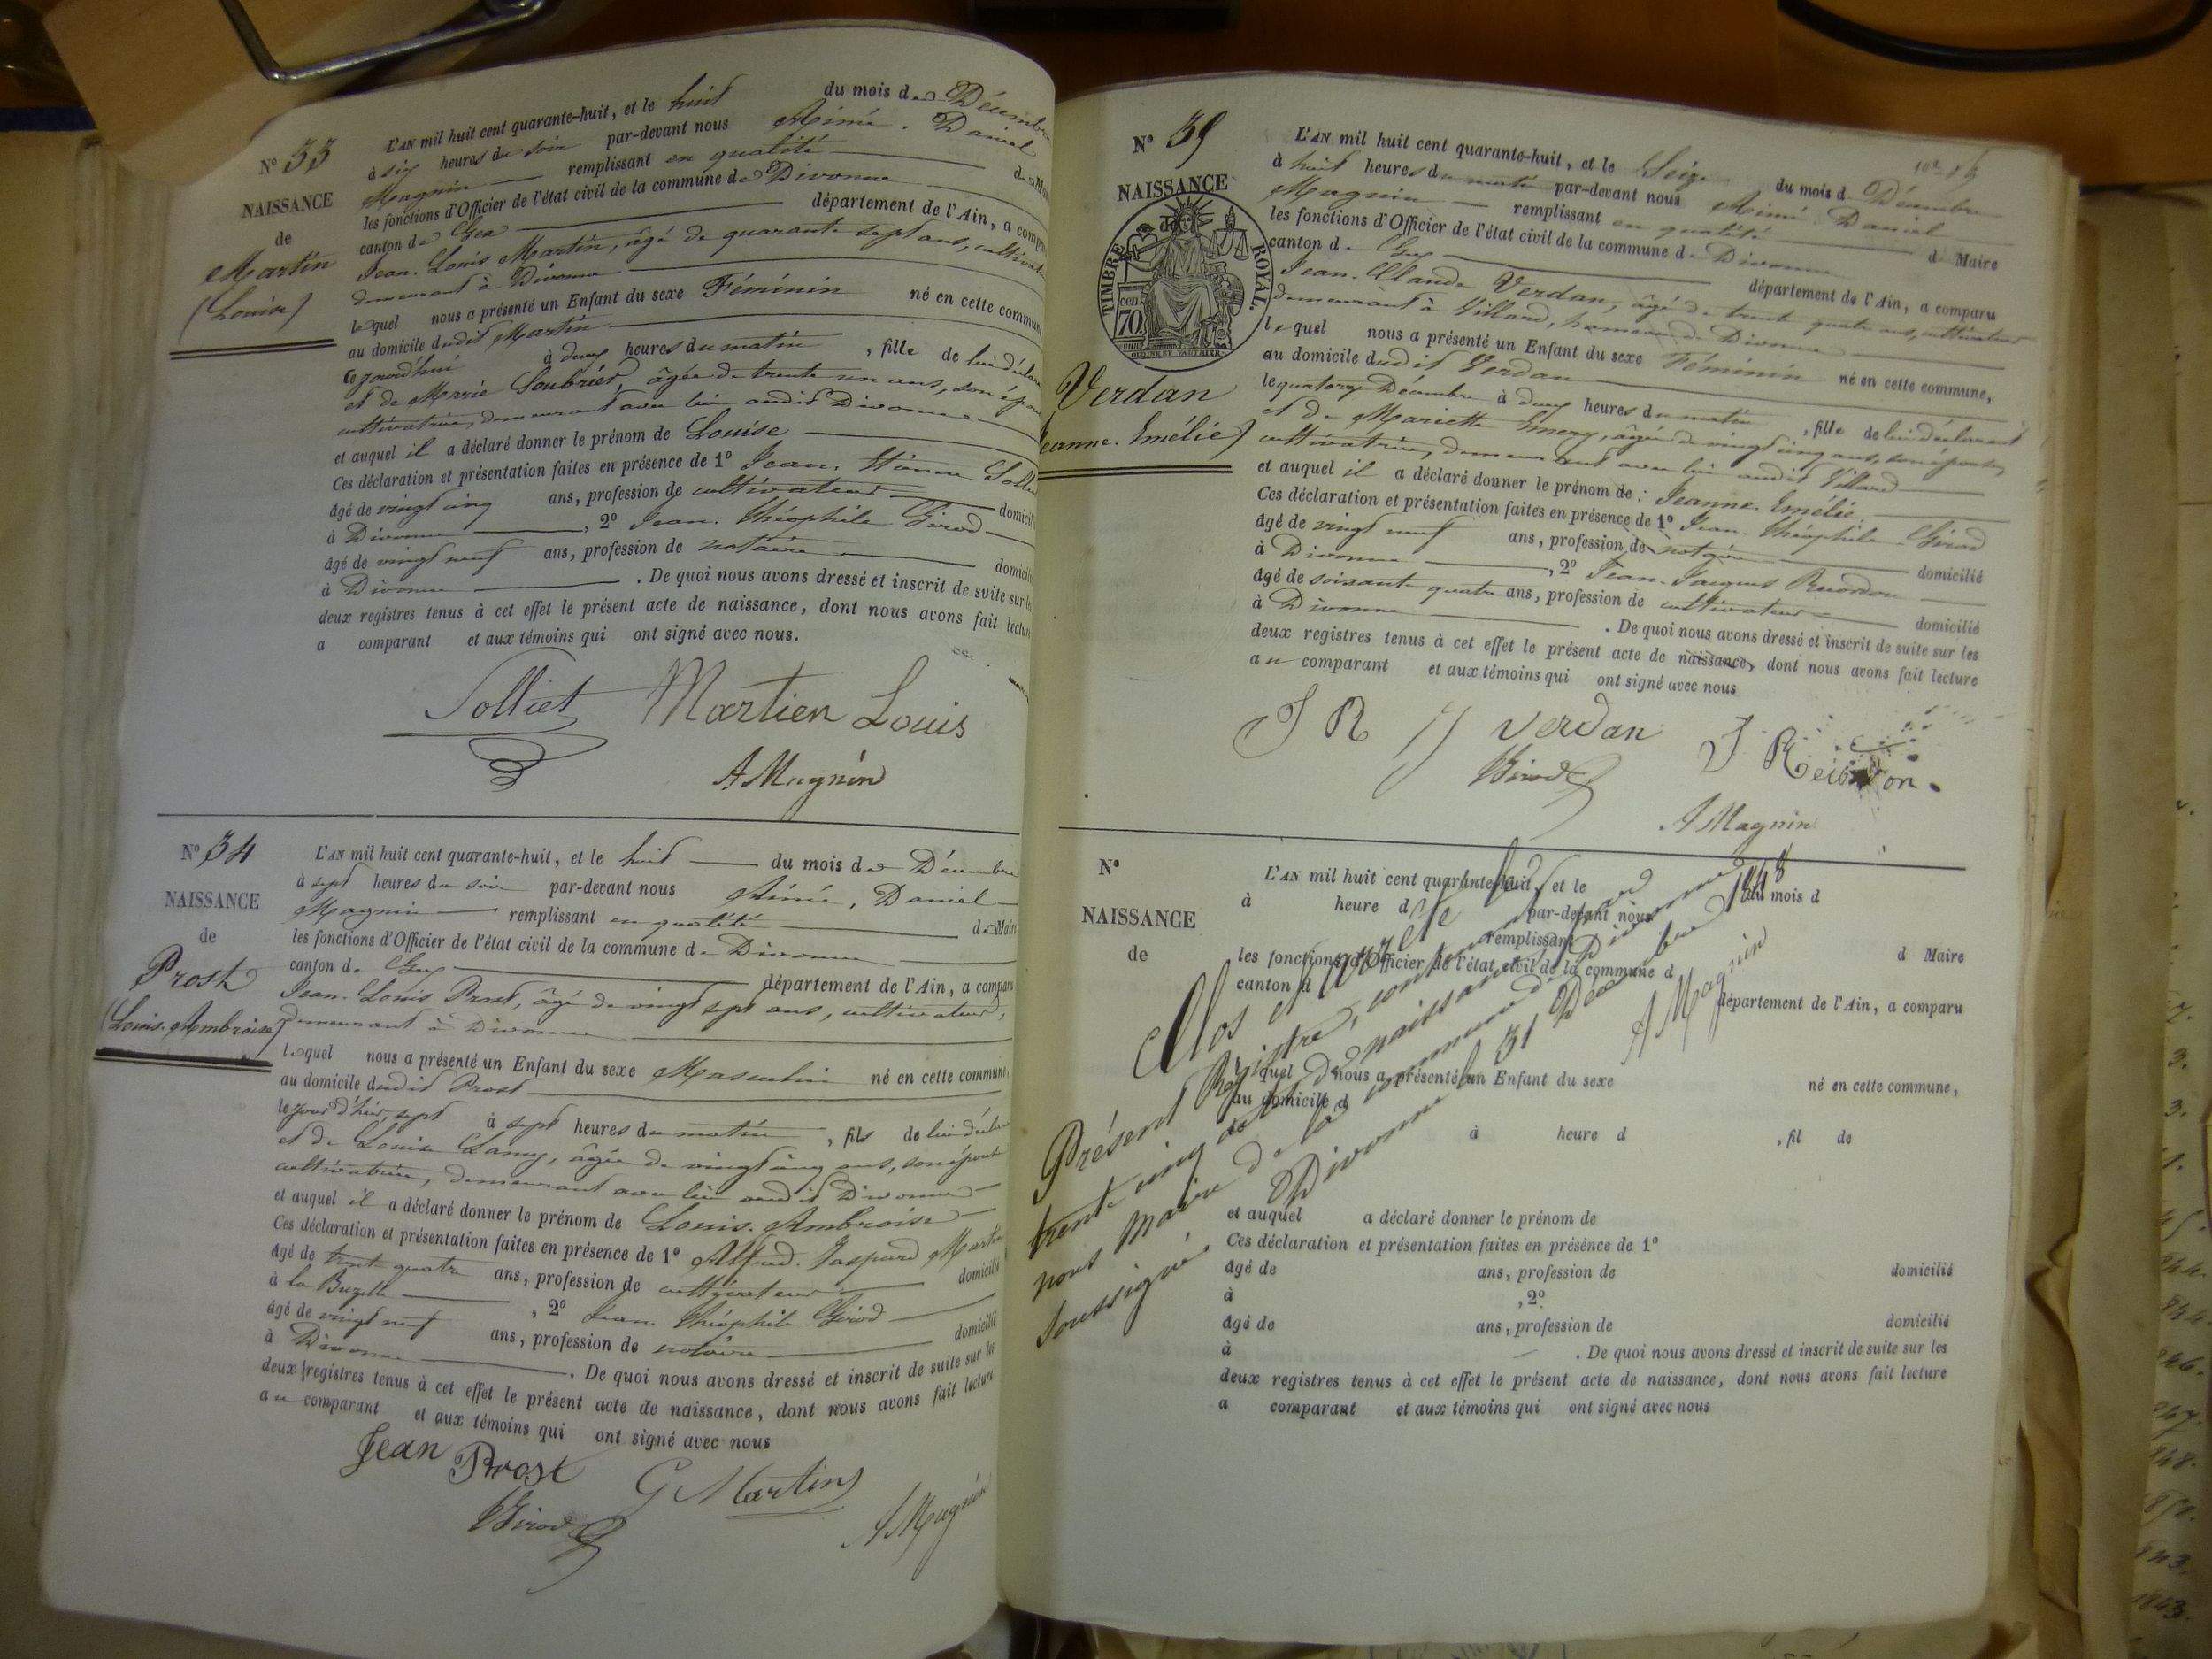 N° 33
NAISSANCE
de
Martin
(Louise)
L'AN mil huit cent quarante-huit, et le huit du mois de Décembre
à six heures du soir par-devant nous Aimé. Daniel
Magnin remplissant en qualité de Maire
les fonctions d'Officier de l'état civil de la commune de Divonne
canton de Gex département de l'Ain, a comparu
Jean. Louis Martin, âgé de quarante sept ans, cultivateur
demeurant à Divonne
lequel nous a présenté un Enfant du sexe Féminin né en cette commune
au domicile dudit Martin
cejourd'hui à deux heures du matin, fille de lui déclarant
et de Marie Soubrier, âgée de trente un ans, son épouse
cultivatrice, demeurant avec lui audit Divonne
et auquel il a déclaré donner le prénom de Louise
Ces déclaration et présentation faites en présence de 1° Jean. Etienne Solliet
âgé de vingt cinq ans, profession de cultivateur domicilié
à Divonne, 2° Jean. Théophile Girod
âgé de vingt neuf ans, profession de notaire domicilié
à Divonne. De quoi nous avons dressé et inscrit de suite sur les
deux registres tenus à cet effet le présent acte de naissance, dont nous avons fait lecture
a comparant et aux témoins qui ont signé avec nous.
Solliet Martien Louis
A Magnin
N° 34
NAISSANCE
de
Prost
(Louis. Ambroise)
L'AN mil huit cent quarante-huit, et le huit du mois de Décembre
à sept heures du soir par-devant nous Aimé, Daniel
Magnin remplissant en qualité de Maire
les fonctions d'Officier de l'état civil de la commune de Divonne
canton de Gex département de l'Ain, a comparu
Jean. Louis Prost, âgé de vingt sept ans, cultivateur,
demeurant à Divonne
lequel nous a présenté un Enfant du sexe Masculin né en cette commune,
au domicile dudit Prost
le jour d'hier, sept à sept heures du matin, fils de lui déclarant
et de Louise Lamy, âgée de vingt cinq ans, son épouse
cultivatrice, demeurant avec lui audit Divonne
et auquel il a déclaré donner le prénom de Louis. Ambroise
Ces déclaration et présentation faites en présence de 1° Alfred. Gaspard Martin
âgé de trente quatre ans, profession de cultivateur domicilié
à la 2° Jean. Théophile Girod
âgé de vingt neuf ans, profession de notaire domicilié
à Divonne. De quoi nous avons dressé et inscrit de suite sur les
deux registres tenus à cet effet le présent acte de naissance, dont nous avons fait lecture
au comparant et aux témoins qui ont signé avec nous
Jean Prost G Martin
Girod A Magnin
N° 35
NAISSANCE
TIMBRE ROYAL
70 cen
Verdan
Jeanne. Emélie)
L'AN mil huit cent quarante-huit, et le Seize du mois d Décembre
à huit heures du matin par-devant nous Aimé Daniel
Magnin remplissant en qualité d Maire
les fonctions d'Officier de l'état civil de la commune d Divonne
canton de Gex département de l'Ain, a comparu
Jean. Claude Verdan, âgé de trente quatre ans, cultivateur
demeurant à Villard, hameau de Divonne
lequel nous a présenté un Enfant du sexe Féminin né en cette commune,
au domicile dudit Verdan
le quatorze Décembre à deux heures du matin, fille de lui déclarant
et de Mariette Emery, âgée de vingt cinq ans, son épouse,
cultivatrice, demeurant avec lui audit Villard
et auquel il a déclaré donner le prénom de : Jeanne. Emélie
Ces déclaration et présentation faites en présence de 1° Jean. Théophile Girod
âgé de vingt neuf ans, profession de notaire domicilié
à Divonne, 2° Jean. Jacques Recordon
âgé de soixante quatre ans, profession de cultivateur domicilié
à Divonne. De quoi nous avons dressé et inscrit de suite sur les
deux registres tenus à cet effet le présent acte de naissance, dont nous avons fait lecture
au comparant et aux témoins qui ont signé avec nous
J R Verdan
Girod
A Magnin
N°
NAISSANCE
de
L'AN mil huit cent quarante-huit, et le du mois d
à heure d par-devant nous
remplissant d Maire
les fonctions d'Officier de l'état civil de la commune d
canton d département de l'Ain, a comparu
l quel nous a présenté un Enfant du sexe né en cette commune,
au domicile d
à heure d , fil de
et auquel a déclaré donner le prénom de
Ces déclaration et présentation faites en présence de 1°
âgé de ans, profession de domicilié
à , 2°
âgé de ans, profession de domicilié
à . De quoi nous avons dressé et inscrit de suite sur les
deux registres tenus à cet effet le présent acte de naissance, dont nous avons fait lecture
a comparant et aux témoins qui ont signé avec nous
Clos et arrêté le
Présent Registre, contenant
trente cinq actes de naissance par
nous Maire de la commune de Divonne
soussigné. Divonne le 31 Décembre 1848
A Magnin